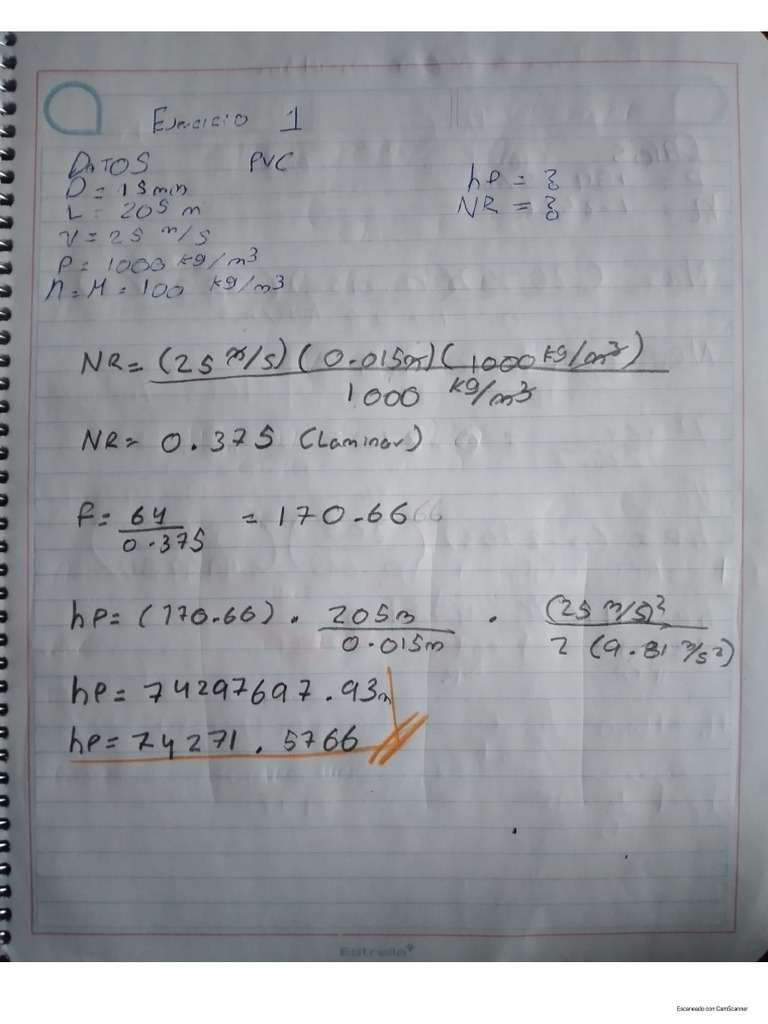 Ejercicio 1
DATOS PVC
D = 15 min
L = 205 m
V = 25 m/s
P = 1000 kg/m3
n = M = 100 kg/m3
hP = ?
NR = ?
NR = (25 m/s) (0.015m) (1000 kg/m3)
1000 kg/m3
NR = 0.375 (Laminar)
F = 64 = 170.6666
0.375
hP = (170.66) . 205m . (25 m/s)2
0.015m 2 (9.81 m/s2)
hP = 74297697.93m
hP = 74271.5766
Estrella
Escaneado con CamScanner